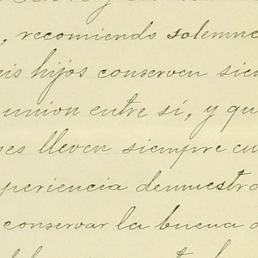 , recomiendo solemne
is hijos conserven sie
union entre sí, y qu
es lleven siempre cu
periencia demuestra
conservar la buena